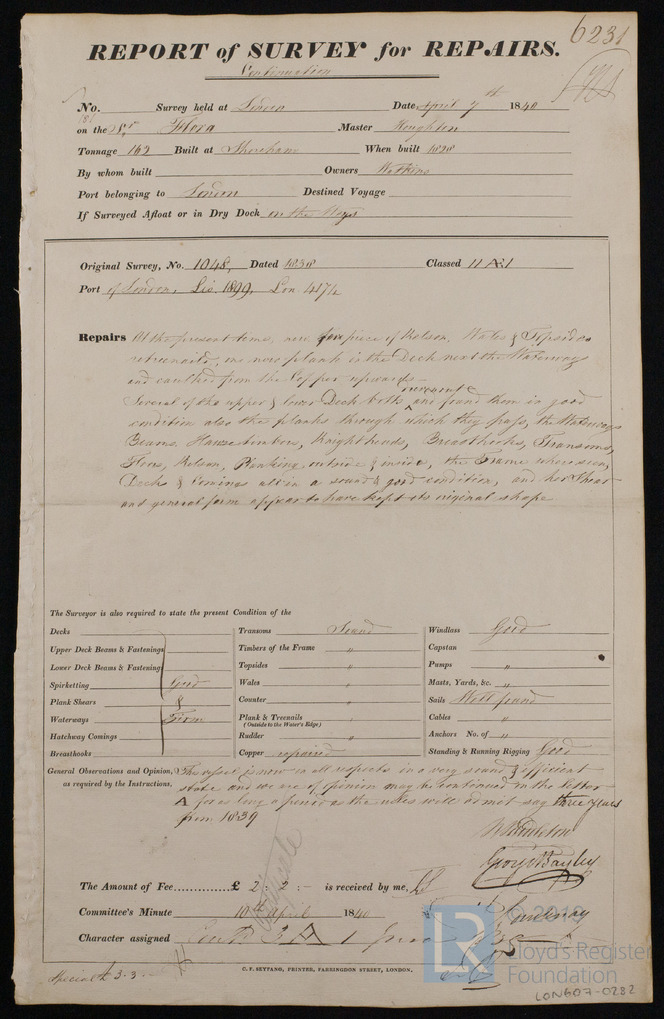 6231
REPORT of SURVEY for REPAIRS.
Continuation
No. 181 Survey held at London Date April 7th 1840
on the Sr Flora Master Houghton
Tonnage 162 Built at Shoreham When built 1828
By whom built Owners Watkins
Port belonging to London Destined Voyage
If Surveyed Afloat or in Dry Dock on the Ways
Original Survey, No. 1048, Dated 1838 Classed 11 A1
Port of London, Lis. 1899, Lon. 4172
Repairs At the present time, new fore piece of Kelson, Wales & Topsides
retreenailed, one new plank in the Deck next the Waterways
and caulked from the Copper upwards
removed
Several of the upper & lower Deck bolts and found them in good
condition also the planks through which they pass, the Waterways
Beams, Hawsetimbers, Knightheads, Breasthooks, Transoms,
Floors, Kelson, Planking outside & inside, the Frame where seen,
Decks & Comings all in a sound & good condition, and her Shear
and general form appear to have kept its original shape
The Surveyor is also required to state the present Condition of the
Decks
Upper Deck Beams & Fastenings
Lower Deck Beams & Fastenings
Spirketting Good
Plank Shears &
Waterways Firm
Hatchway Comings
Breasthooks
Transoms Sound
Timbers of the Frame "
Topsides "
Wales "
Counter "
Plank & Treenails "
(Outside to the Water's Edge)
Rudder "
Copper repaired
Windlass Good
Capstan
Pumps "
Masts, Yards, &c. "
Sails Well found
Cables "
Anchors No. of "
Standing & Running Rigging Good
General Observations and Opinion,
as required by the Instructions.
The vessel is now in all respects in a very sound & efficient
state and we are of opinion may be continued in the letter
A for as long a period as the rules will admit say three years
from 1839
George Bayley
The Amount of Fee £ 2 : 2 : - is received by me,
Committee's Minute 10th April 1840
Character assigned Contd 3 A 1
C. F. SEYFANG, PRINTER, FARRINGDON STREET, LONDON.
Special £ 3.3
LR
© 2019
Lloyd's Register
Foundation
LON607-0232